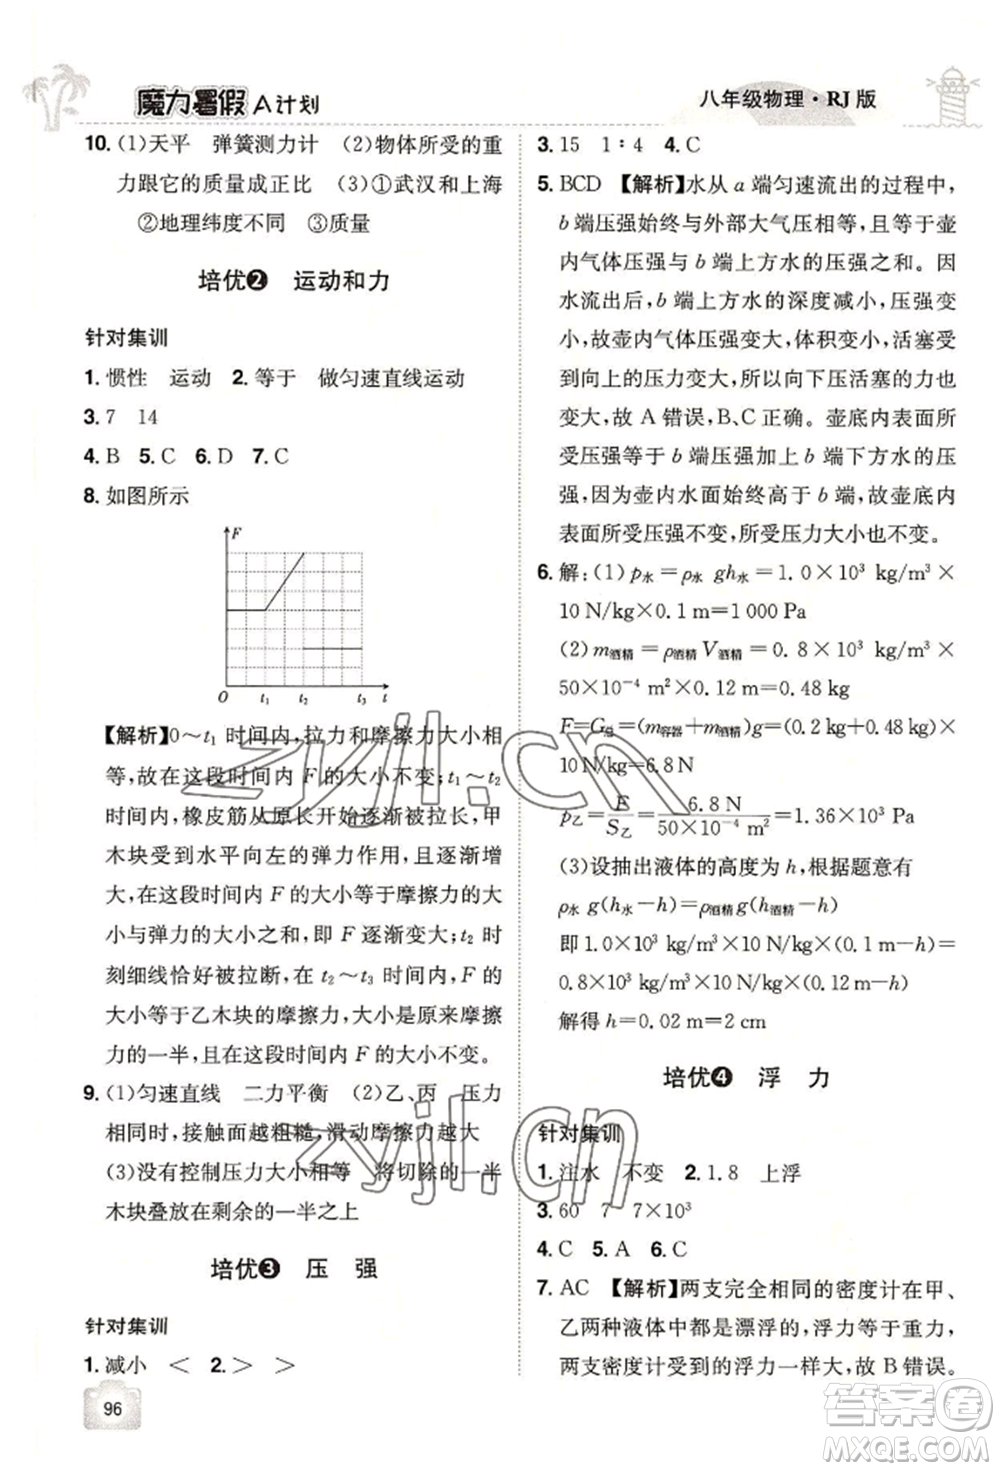 魔力暑假 A计划
八年级物理·RJ版
10. (1)天平 弹簧测力计 (2)物体所受的重
力跟它的质量成正比 (3)①武汉和上海
②地理纬度不同 ③质量
培优❷ 运动和力
针对集训
1. 惯性 运动 2. 等于 做匀速直线运动
3. 7 14
4. B 5. C 6. D 7. C
8. 如图所示
F
O t₁ t₂ t₃ t
【解析】0～t₁ 时间内,拉力和摩擦力大小相
等,故在这段时间内 F 的大小不变;t₁～t₂
时间内,橡皮筋从原长开始逐渐被拉长,甲
木块受到水平向左的弹力作用,且逐渐增
大,在这段时间内 F 的大小等于摩擦力的大
小与弹力的大小之和,即 F 逐渐增大;t₂ 时
刻细线恰好被拉断,在 t₂～t₃ 时间内,F 的
大小等于乙木块的摩擦力,大小是原来摩擦
力的一半,且在这段时间内大小不变。
9. (1)匀速直线 二力平衡 (2)乙、丙 压力
相同时,接触面越粗糙,滑动摩擦力越大
(3)没有控制压力大小相等 将切除的一半
木块叠放在剩余的一半之上
培优❸ 压 强
针对集训
1. 减小 ＜ 2. ＞ ＞
96
3. 15 1∶4 4. C
5. BCD 【解析】水从 a 端匀速流出的过程中,
b 端压强始终与外部大气压相等,并等于壶
内气体压强与 b 端上方水的压强之和。因
水流出后,b 端上方水的深度减小,压强变
小,故壶内气体压强变大,体积变小,活塞受
到向上的压力变大,所以向下压活塞的力也
变大,故 A 错误,B、C 正确。壶底内表面所
受压强等于 b 端压强加上 b 端下方水的压
强,因为壶内水面始终高于 b 端,故壶底内
表面所受压强不变,所受压力大小也不变。
6. 解:(1) p水＝ρ水 gh水＝1.0×10³ kg/m³×
10 N/kg×0.1 m＝1 000 Pa
(2) m酒精＝ρ酒精V酒精＝0.8×10³ kg/m³×
50×10⁻⁴ m²×0.12 m＝0.48 kg
F＝G总＝(m容器＋m酒精)g＝(0.2 kg＋0.48 kg)×
10 N/kg＝6.8 N
p乙＝F/S乙＝6.8 N/50×10⁻⁴ m²＝1.36×10³ Pa
(3)设抽出液体的高度为 h,根据题意有
ρ水 g(h水－h)＝ρ酒精g(h酒精－h)
即 1.0×10³ kg/m³×g×(0.1 m－h)＝
0.8×10³ kg/m³×g×(0.12 m－h)
解得 h＝0.02 m＝2 cm
培优❹ 浮 力
针对集训
1. 注水 不变 2. 1.8 上浮
3. 60 7 7×10³
4. C 5. A 6. C
7. AC 【解析】两支完全相同的密度计在甲、
乙两种液体中都是漂浮的,浮力等于重力,
两支密度计受到的浮力一样大,故 B 错误。
zyjl.cn
zyjl.cn
答案卷
MXQE.COM